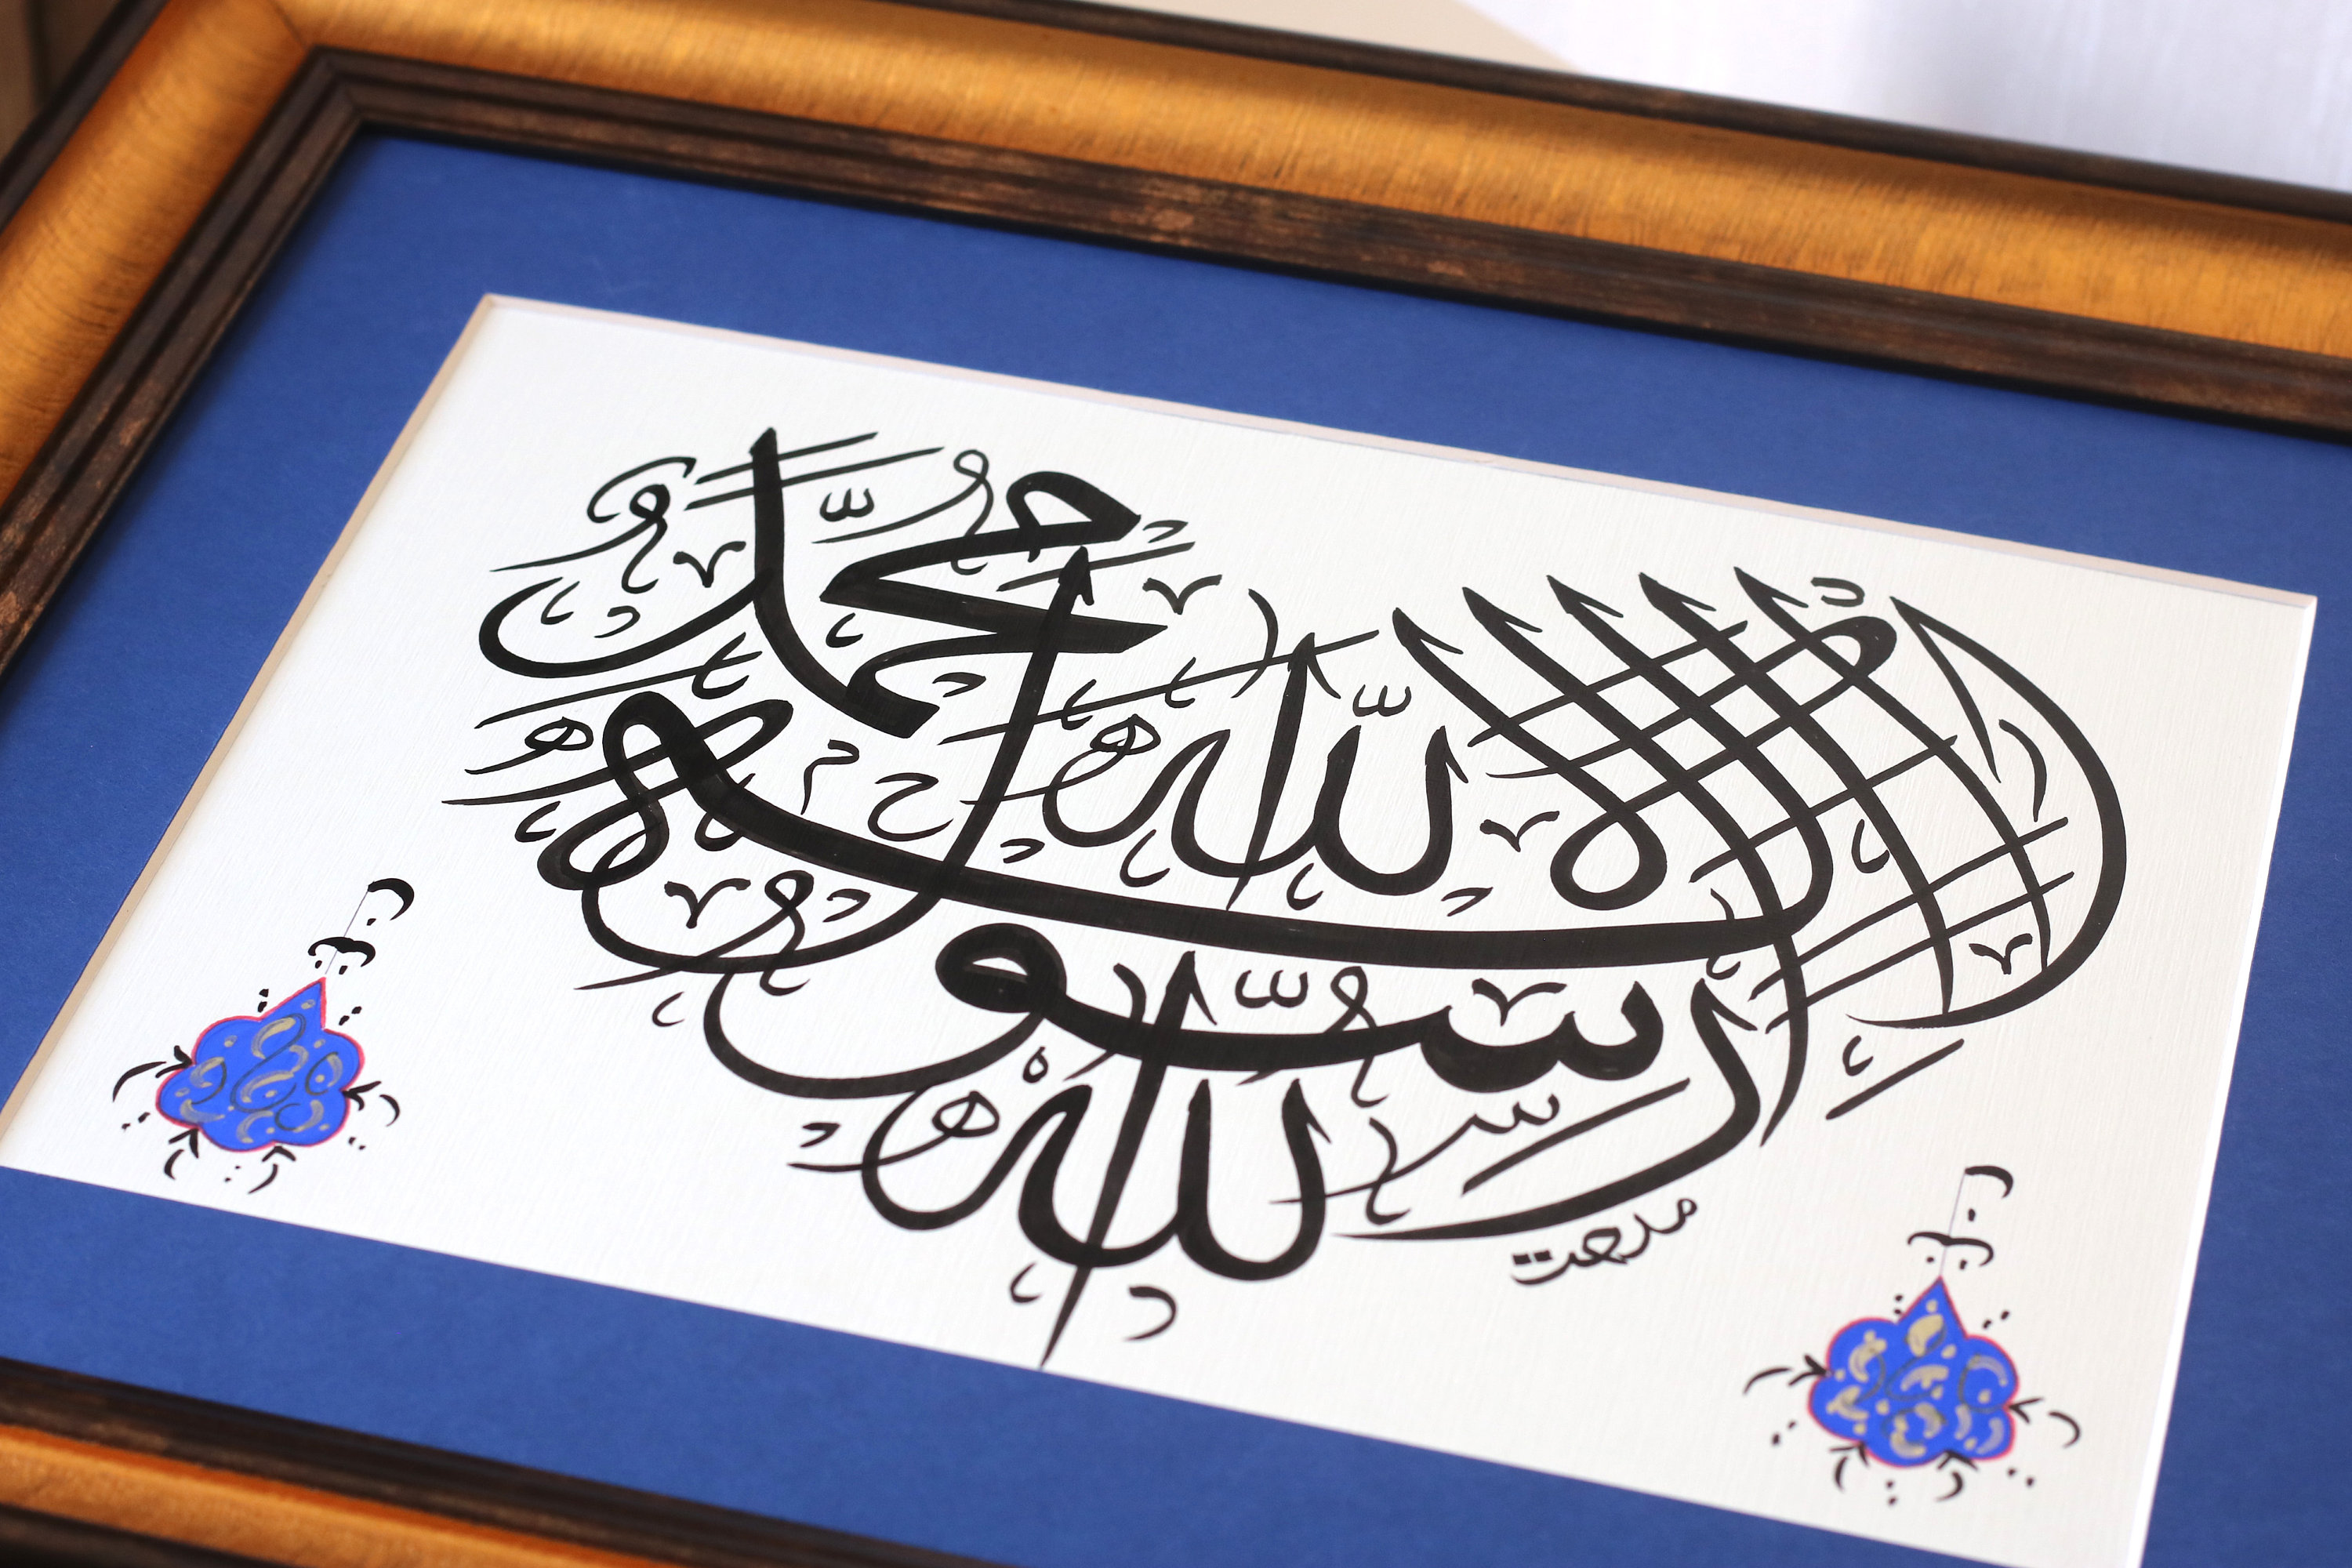 لا إله إلا الله
محمد
رسول الله
مدحت